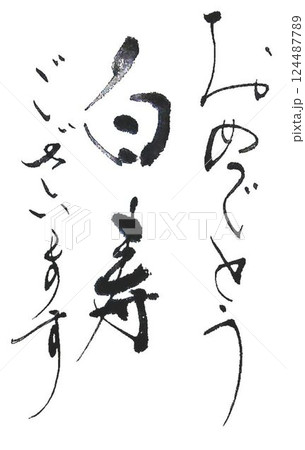 おめでとう
白寿
ございます
PIXTA
pixta.jp - 124487789